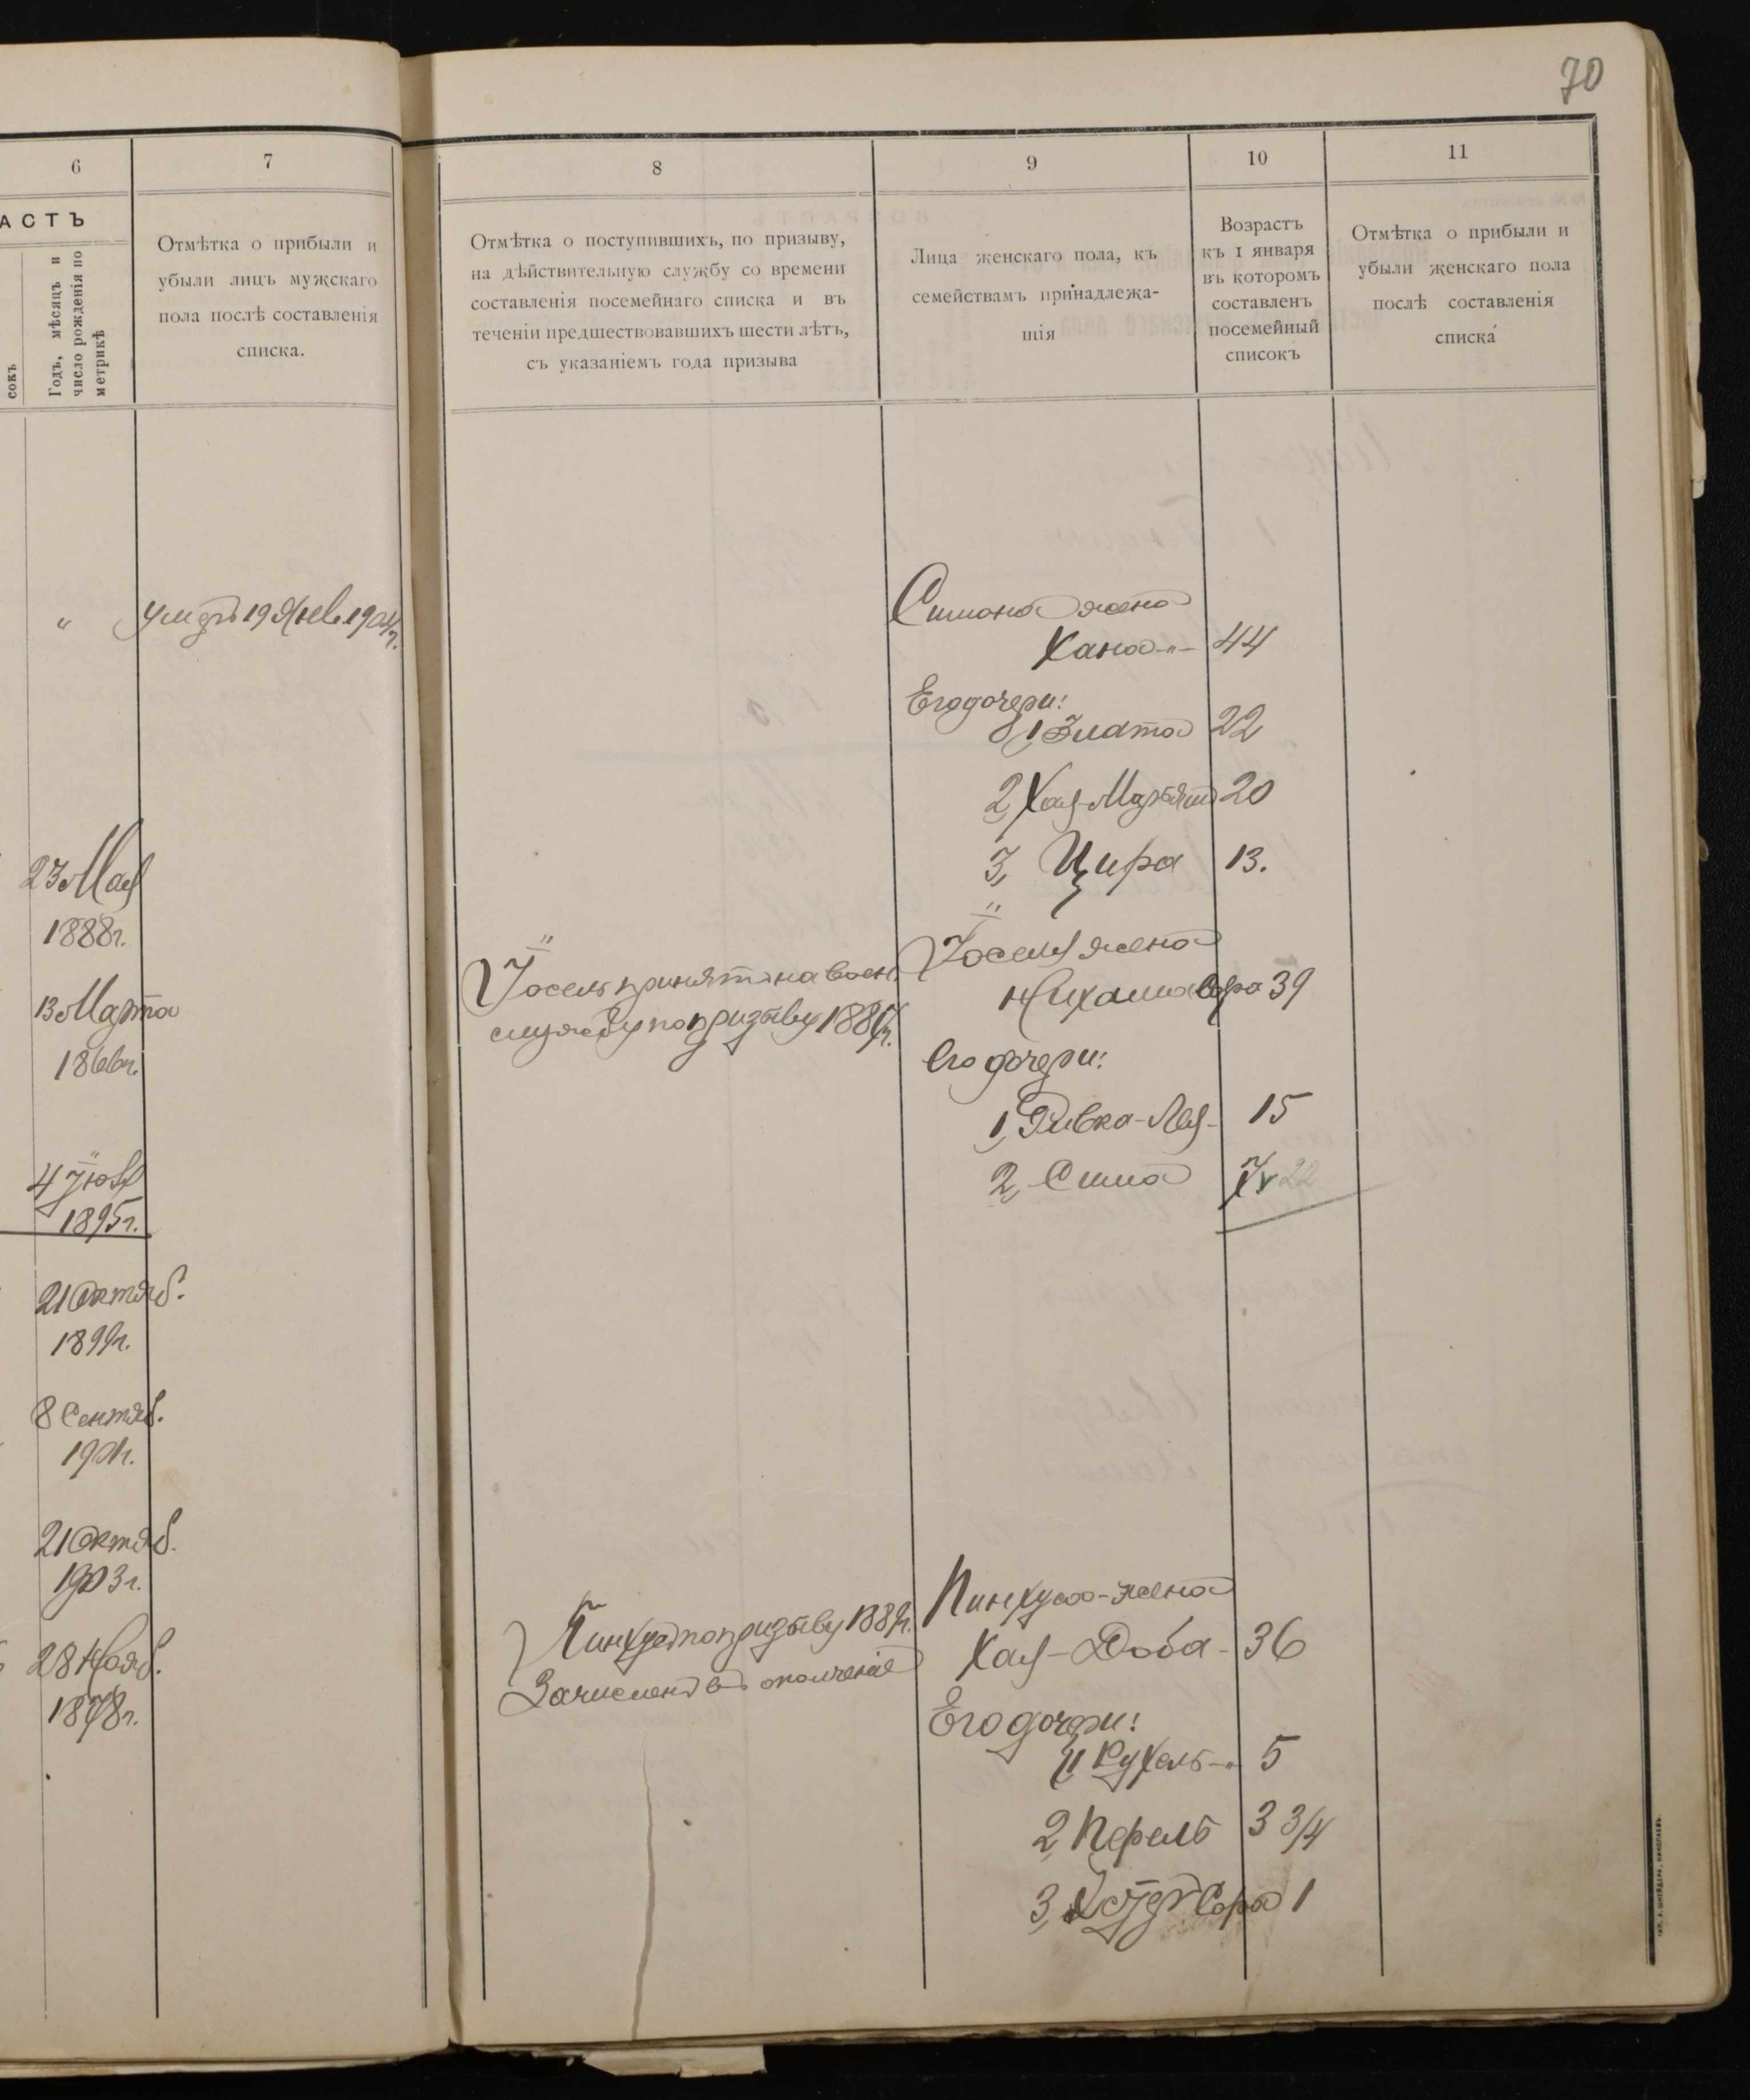 70
6
7
8
9
10
11
АСТЪ
сокъ
Годъ, мѣсяцъ и
число рожденія по
метрикѣ
Отмѣтка о прибыли и
убыли лицъ мужскаго
пола послѣ составленія
списка.
Отмѣтка о поступившихъ, по призыву,
на дѣйствительную службу со времени
составленія посемейнаго списка и въ
теченіи предшествовавшихъ шести лѣтъ,
съ указаніемъ года призыва
Лица женскаго пола, къ
семействамъ принадлежа-
щія
Возрастъ
къ 1 января
въ которомъ
составленъ
посемейный
списокъ
Отмѣтка о прибыли и
убыли женскаго пола
послѣ составленія
списка
"
умеръ 19 Янв.
23 Мая
1888г.
13 Марта
4 Іюля
1895г.
21 Октяб.
1899г.
8 Сентяб.
21 Октяб.
1903г.
28 Нояб.
1878г.
Іосель принятъ на воен.
службу по призыву
Пинхусъ по призыву
Зачисленъ въ ополченіе
Симона жена
Хана -"- 44
Его дочери:
1, Злата 22
2, Хая-Марьям 20
3, Цира 13.
Іоселя жена
Нихама Сора 39
Его дочери:
1, Ривка-Лея- 15
2, Сима 7
Пинхуса-жена
Хая-Доба- 36
Его дочери:
1, Рухель -"- 5
2, Перель 3 3/4
3, Сора 1